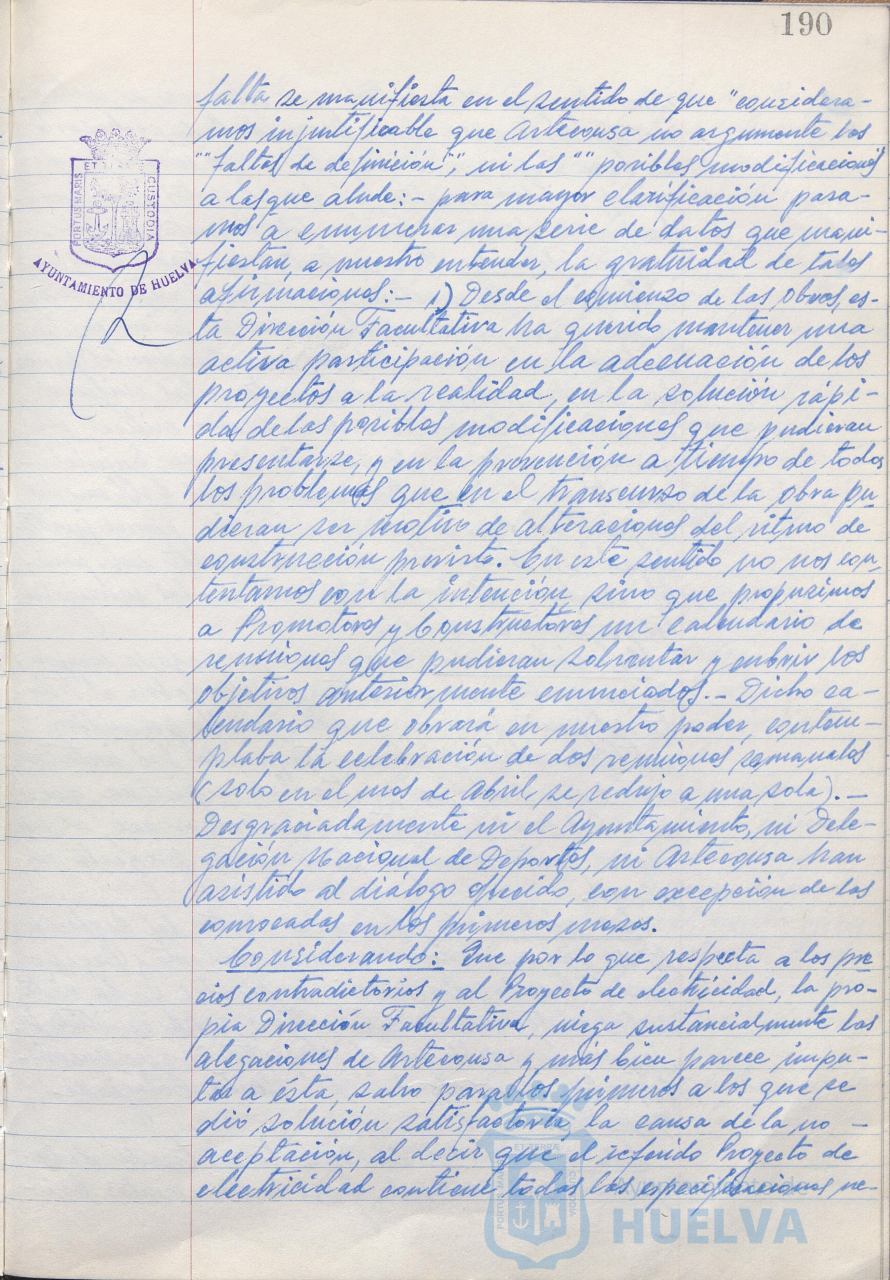 190
falta se manifiesta en el sentido de que "considera-
mos injustificable que Artecousa no argumente las
""faltas de definición"", ni las "" posibles modificaciones
a las que alude:- para mayor clarificación pasa-
mos a enumerar una serie de datos que mani-
fiestan, a nuestro entender, la gratuidad de tales
afirmaciones:- 1) Desde el comienzo de las obras, es-
ta Dirección Facultativa ha querido mantener una
activa participación en la adecuación de los
proyectos a la realidad, en la solución rápi-
da de las posibles modificaciones que pudieran
presentarse, y en la prevención a tiempo de todos
los problemas que en el transcurso de la obra pu-
dieran ser motivo de alteraciones del ritmo de
construcción previsto. En este sentido no nos con-
tentamos con la intención, sino que propusimos
a Promotores y Constructores un calendario de
reuniones que pudieran solventar y cubrir los
objetivos anteriormente enunciados.- Dicho ca-
lendario que obrará en nuestro poder, contem-
plaba la celebración de dos reuniones semanales
(solo en el mes de Abril, se redujo a una sola).-
Desgraciadamente ni el Ayuntamiento, ni Dele-
gación Nacional de Deportes, ni Artecousa han
asistido al diálogo ofrecido, con excepción de las
convocadas en los primeros meses.
Considerando: Que por lo que respecta a los pre
cios contradictorios y al Proyecto de electricidad, la pro-
pia Dirección Facultativa, niega sustancialmente las
alegaciones de Artecousa y más bien parece impu-
tar a ésta, salvo para los primeros a los que se
dió solución satisfactoria, la causa de la no -
aceptación, al decir que el referido Proyecto de
electricidad contiene todas las especificaciones ne-
PORTUS MARIS ET TERRAE CUSTODIA
AYUNTAMIENTO DE HUELVA
Ayuntamiento de
HUELVA